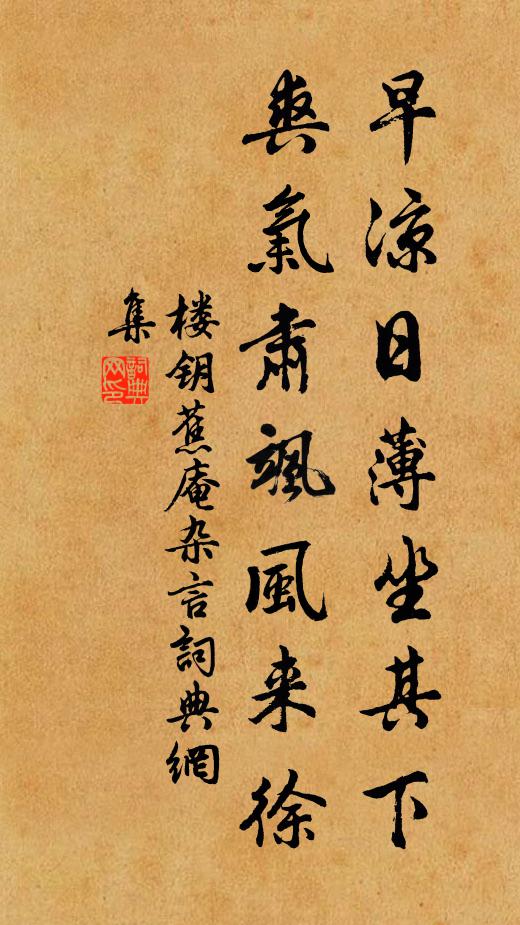 早凉日薄坐其下
爽氣肃颯風来徐
楼钥蕉庵杂言詞典網
集
詞典网印